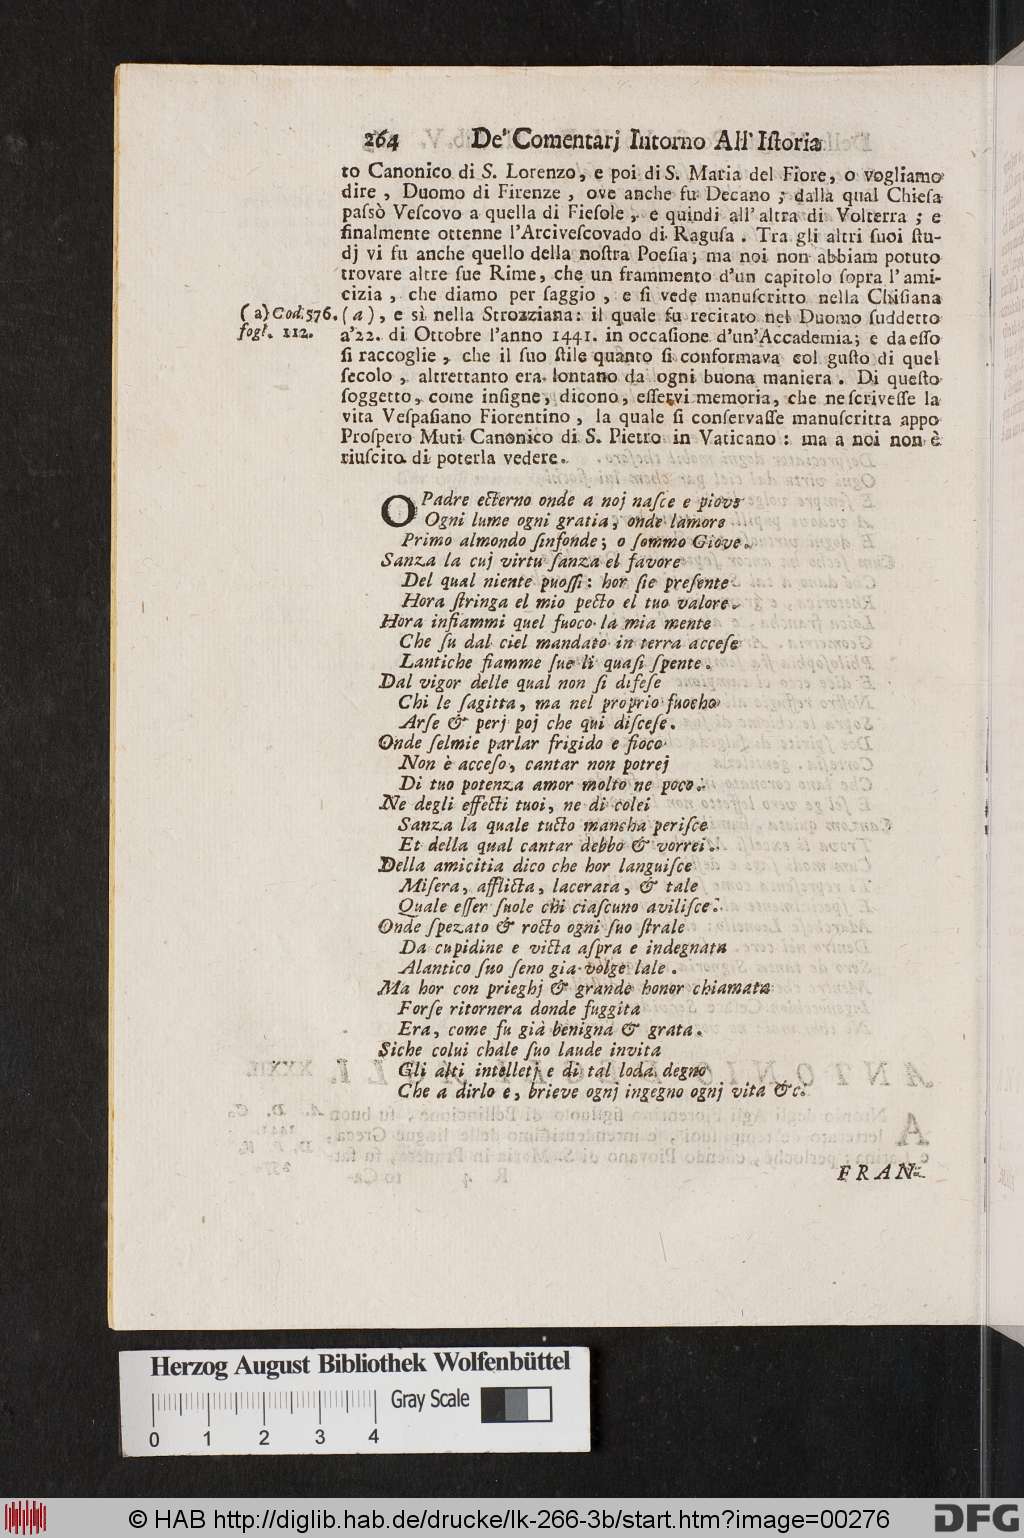 264 De' Comentarj Intorno All' Iſtoria
to Canonico di S. Lorenzo, e poi di S. Maria del Fiore, o vogliamo
dire, Duomo di Firenze, ove anche fu Decano; dalla qual Chieſa
paſsò Veſcovo a quella di Fieſole, e quindi all' altra di Volterra; e
finalmente ottenne l'Arciveſcovado di Raguſa. Tra gli altri ſuoi ſtu-
dj vi fu anche quello della noſtra Poeſia; ma noi non abbiam potuto
trovare altre ſue Rime, che un frammento d'un capitolo ſopra l' ami-
cizia, che diamo per ſaggio, e ſi vede manuſcritto nella Chiſiana
(a) Cod. 576. (a), e sì nella Strozziana: il quale fu recitato nel Duomo ſuddetto
fogl. 112. a'22. di Ottobre l'anno 1441. in occaſione d'un'Accademia; e da eſſo
ſi raccoglie, che il ſuo ſtile quanto ſi conformava col guſto di quel
ſecolo, altrettanto era lontano da ogni buona maniera. Di queſto
ſoggetto, come inſigne, dicono, eſſervi memoria, che ne ſcriveſſe la
vita Veſpaſiano Fiorentino, la quale ſi conſervaſſe manuſcritta appo
Proſpero Muti Canonico di S. Pietro in Vaticano: ma a noi non è
riuſcito di poterla vedere.
O Padre ecterno onde a noj naſce e piove
Ogni lume ogni gratia, onde lamore
Primo almondo ſinfonde; o ſommo Giove.
Sanza la cuj virtu ſanza el favore
Del qual niente puoſſi: hor ſie preſente
Hora ſtringa el mio pecto el tuo valore.
Hora infiammi quel fuoco la mia mente
Che ſu dal ciel mandato in terra acceſe
Lantiche fiamme ſue li quaſi ſpente.
Dal vigor delle qual non ſi difeſe
Chi le ſagitta, ma nel proprio fuocho
Arſe & perj poj che qui diſceſe.
Onde ſelmie parlar frigido e fioco
Non è acceſo, cantar non potrej
Di tuo potenza amor molto ne poco.
Ne degli effecti tuoi, ne di colei
Sanza la quale tucto mancha periſce
Et della qual cantar debbo & vorrei.
Della amicitia dico che hor languiſce
Miſera, afflicta, lacerata, & tale
Quale eſſer ſuole chi ciaſcuno aviliſce.
Onde ſpezato & rocto ogni ſuo ſtrale
Da cupidine e victa aſpra e indegnata
Alantico ſuo ſeno gia volge lale.
Ma hor con prieghj & grande honor chiamata
Forſe ritornera donde fuggita
Era, come fu già benigna & grata.
Siche colui chale ſuo laude invita
Gli alti intelletj e di tal loda degno
Che a dirlo e, brieve ognj ingegno ognj vita &c.
FRAN-
Herzog August Bibliothek Wolfenbüttel
Gray Scale
0 1 2 3 4
© HAB http://diglib.hab.de/drucke/lk-266-3b/start.htm?image=00276
DFG